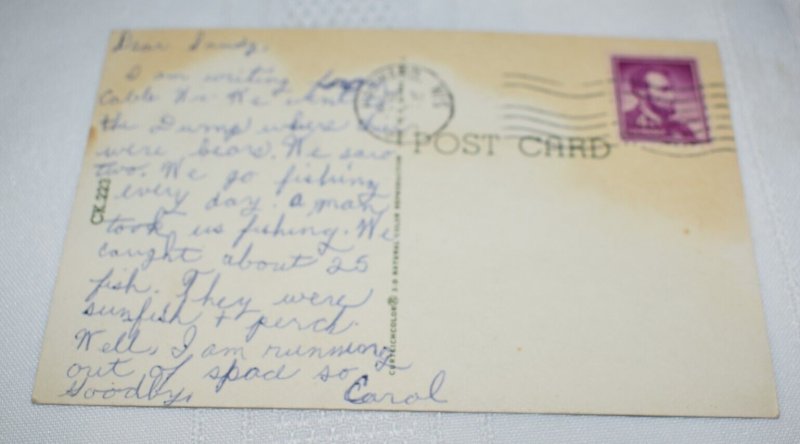 Dear Sandy,
I am writing from
Cable Wis. We went to
the Dump where there
were bears. We saw
two. We go fishing
every day. a man
took us fishing. We
caught about 25
fish. They were
sunfish + perch.
Well, I am running
out of spac so
Goodby,
Carol
POST CARD
CK.223
CURTEICHCOLOR® 3-D NATURAL COLOR REPRODUCTION